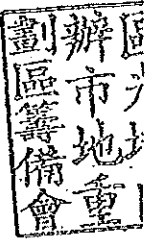 辦市地重
劃區籌備會